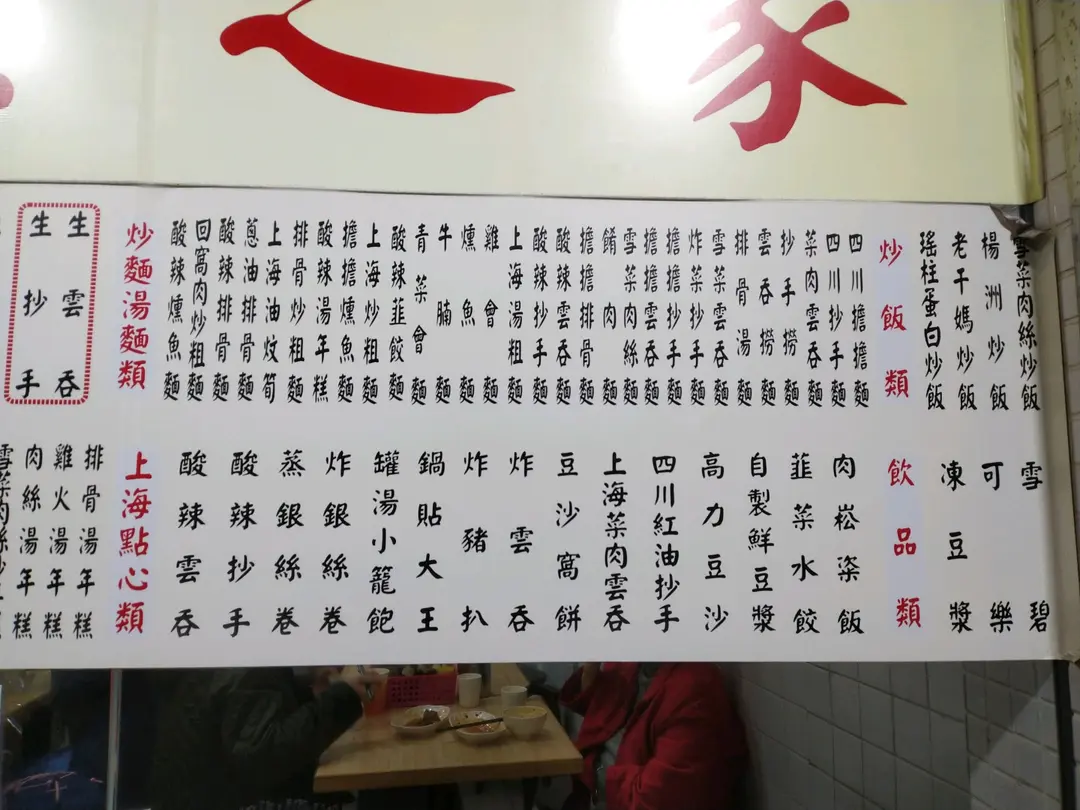 之家
生抄手
生雲吞
炒麵湯麵類
酸辣燻魚麵
回窩肉炒粗麵
酸辣排骨麵
蔥油排骨麵
上海油炆筍
排骨炒粗麵
酸辣湯年糕
擔擔燻魚麵
上海炒粗麵
酸辣韮餃麵
青菜會麵
牛腩麵
燻魚麵
雞會麵
上海湯粗麵
酸辣抄手麵
酸辣雲吞麵
擔擔排骨麵
餚肉麵
雪菜肉絲麵
擔擔雲吞麵
擔擔抄手麵
炸菜抄手麵
雪菜雲吞麵
排骨湯麵
雲吞撈麵
抄手撈麵
菜肉雲吞麵
四川抄手麵
四川擔擔麵
炒飯類
瑤柱蛋白炒飯
老干媽炒飯
楊洲炒飯
雪菜肉絲炒飯
肉絲湯年糕
雞火湯年糕
排骨湯年糕
上海點心類
酸辣雲吞
酸辣抄手
蒸銀絲卷
炸銀絲卷
罐湯小籠飽
鍋貼大王
炸豬扒
炸雲吞
豆沙窩餅
上海菜肉雲吞
四川紅油抄手
高力豆沙
自製鮮豆漿
韮菜水餃
肉崧粢飯
飲品類
凍豆漿
可樂
雪碧